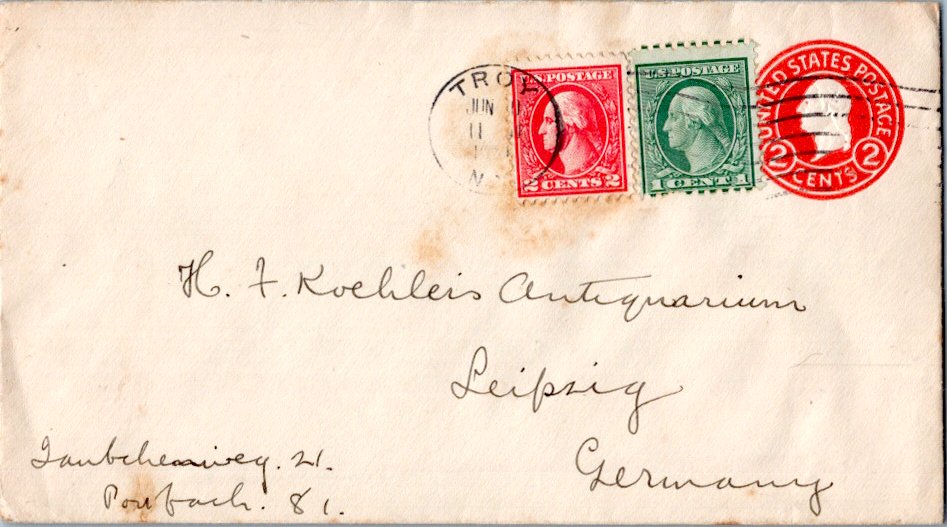 TROY
JUN
11
N
U.S. POSTAGE
2 CENTS 2
U.S. POSTAGE
1 CENT 1
UNITED STATES POSTAGE
2 CENTS 2
H. F. Koehlers Antiquarium
Leipzig
Germany
Taubchenweg. 21.
Postfach. 81.